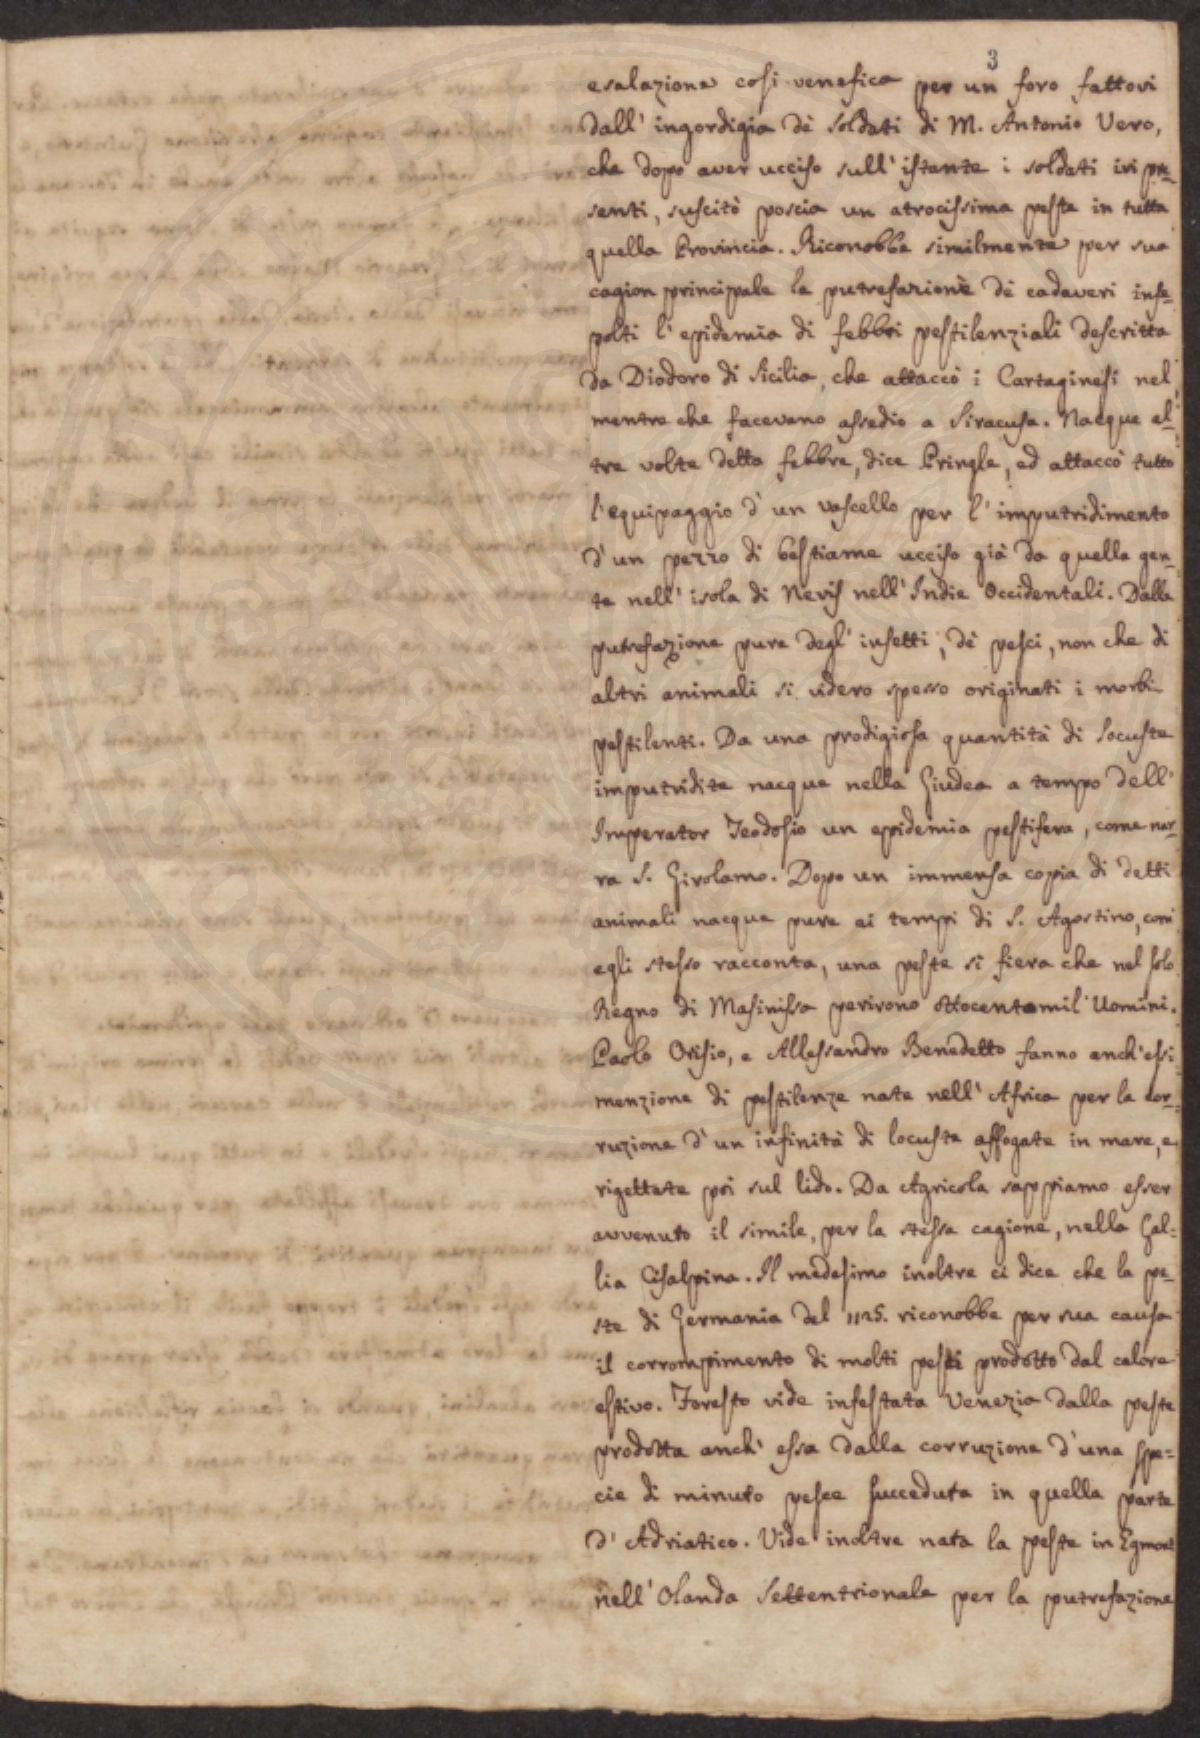 3
esalazione così venefica per un foro fattovi
dall' ingordigia dè soldati di M. Antonio Vero,
che dopo aver ucciso sull' istante i soldati ivi pre-
senti, suscitò poscia un atrocissima peste in tutta
quella Provincia. Riconobbe similmente per sua
cagion principale la putrefazione dè cadaveri inse-
polti l' epidemia di febbri pestilenziali descritta
da Diodoro di Sicilia, che attaccò i Cartaginesi nel
mentre che facevano assedio a Siracusa. Nacque al-
tre volte detta febbre, dice Pringle, ed attaccò tutto
l' equipaggio d' un vascello per l' imputridimento
d' un pezzo di bestiame ucciso già da quella gen-
te nell' isola di Nevis nell' Indie Occidentali. Dalla
putrefazione pure degl' insetti, dè pesci, non che di
altri animali si videro spesso originati i morbi
pestilenti. Da una prodigiosa quantità di Locuste
imputridite nacque nella Giudea a tempo dell'
Imperator Teodosio un epidemia pestifera, come nar-
ra S. Girolamo. Dopo un immensa copia di detti
animali nacque pure ai tempi di S. Agostino, com'
egli stesso racconta, una peste sì fiera che nel solo
Regno di Masinissa perirono ottocentomil' Uomini.
Paolo Orisio, e Allessandro Benedetto fanno anch' essi
menzione di pestilenze nate nell' Africa per la cor-
ruzione d' un infinità di locuste affogate in mare, e
rigettate poi sul lido. Da Agricola sappiamo esser
avvenuto il simile, per la stessa cagione, nella Gal-
lia Cisalpina. Il medesimo inoltre ci dice che la pe-
ste di Germania del 1125. riconobbe per sua causa
il corrompimento di molti pesci prodotto dal calore
estivo. Foresto vide infestata Venezia dalla peste
prodotta anch' essa dalla corruzione d' una spe-
cie di minuto pesce succeduta in quella parte
d' Adriatico. Vide inoltre nata la peste in Egmont
nell' Olanda Settentrionale per la putrefazione